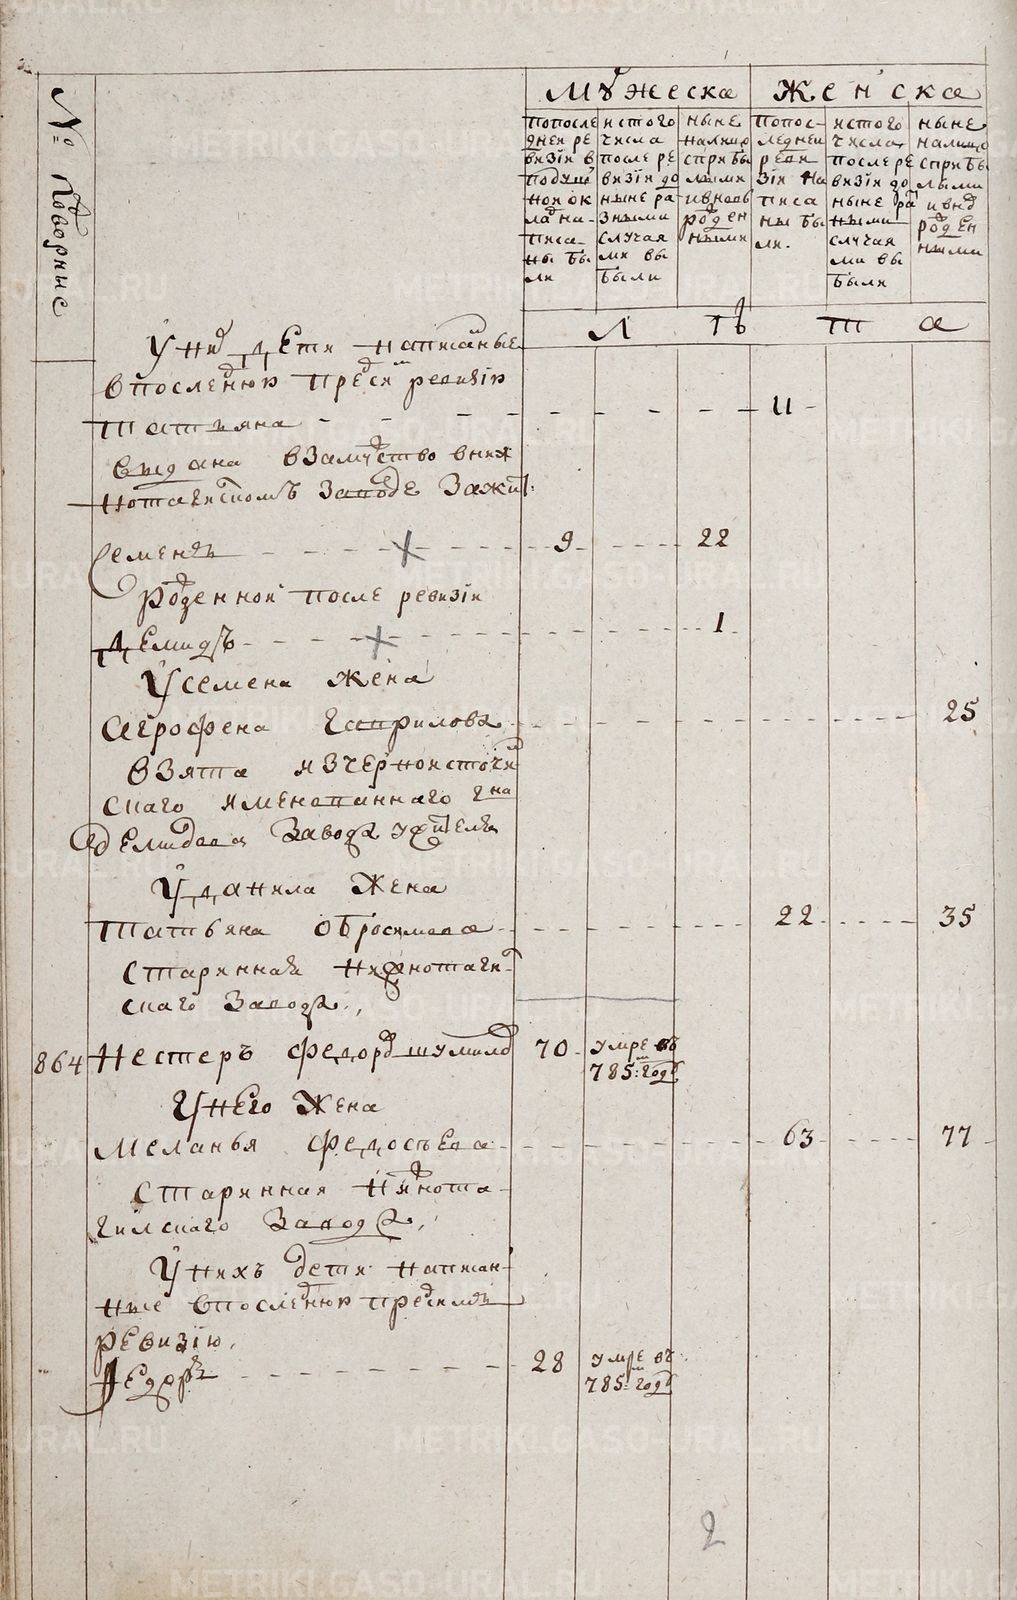 № Подворные
Мужеска Женска
По после
дней ре
визіи в
подуш
ной ок
лад на-
писа-
ны бы
ли
ис того
числа
после ре
визіи до
ныне ра
зными
случая
ми вы
были
ныне
налицо
с прибы
лыми
и вновь
рожден
ными
По пос-
ледней
реви
зіи на
писа
ны бы
ли.
ис того
числа
после ре
визіи до
ныне ра
ными
случая
ми вы
были
ныне
налицо
с прибы
лыми
и внов
рожден
ными
Лѣта
У них дети написаные
в последнюю пред сим ревизіи
Татьяна 11
выдана в замужство в ниж
нотагилскомъ заводе
Семенъ 9 22
Рожденной после ревизіи
Демидъ 1
У Семена жена
Агрофена Гаврилова 25
взята из черноисточин
скаго имянованнаго гна
Демидова завода
У Данила жена
Татьяна Обросимова 22 35
старинная нижнотагил-
скаго завода.,
864 Нестеръ Федоров Шумилов 70 умре въ
785: годѣ
У него жена
Меланья Федосъева 63 77
старинная нижнота-
гилскаго завода.,
У нихъ дети написан-
ные в последнюю пред симъ
ревизію.
Федоръ 28 умре въ
785: годѣ
2
METRIKI.GASO-URAL.RU